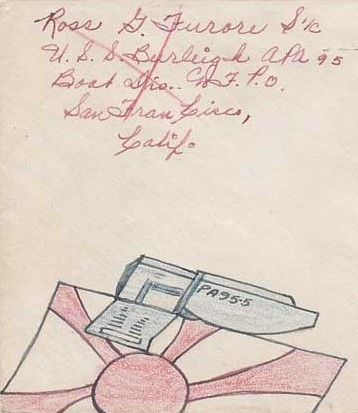 Ross G. Furore S 1/c
U.S.S. Burleigh APA 95
Boat Div. C/o F.P.O.
San Francisco,
Calif.
PA95-5